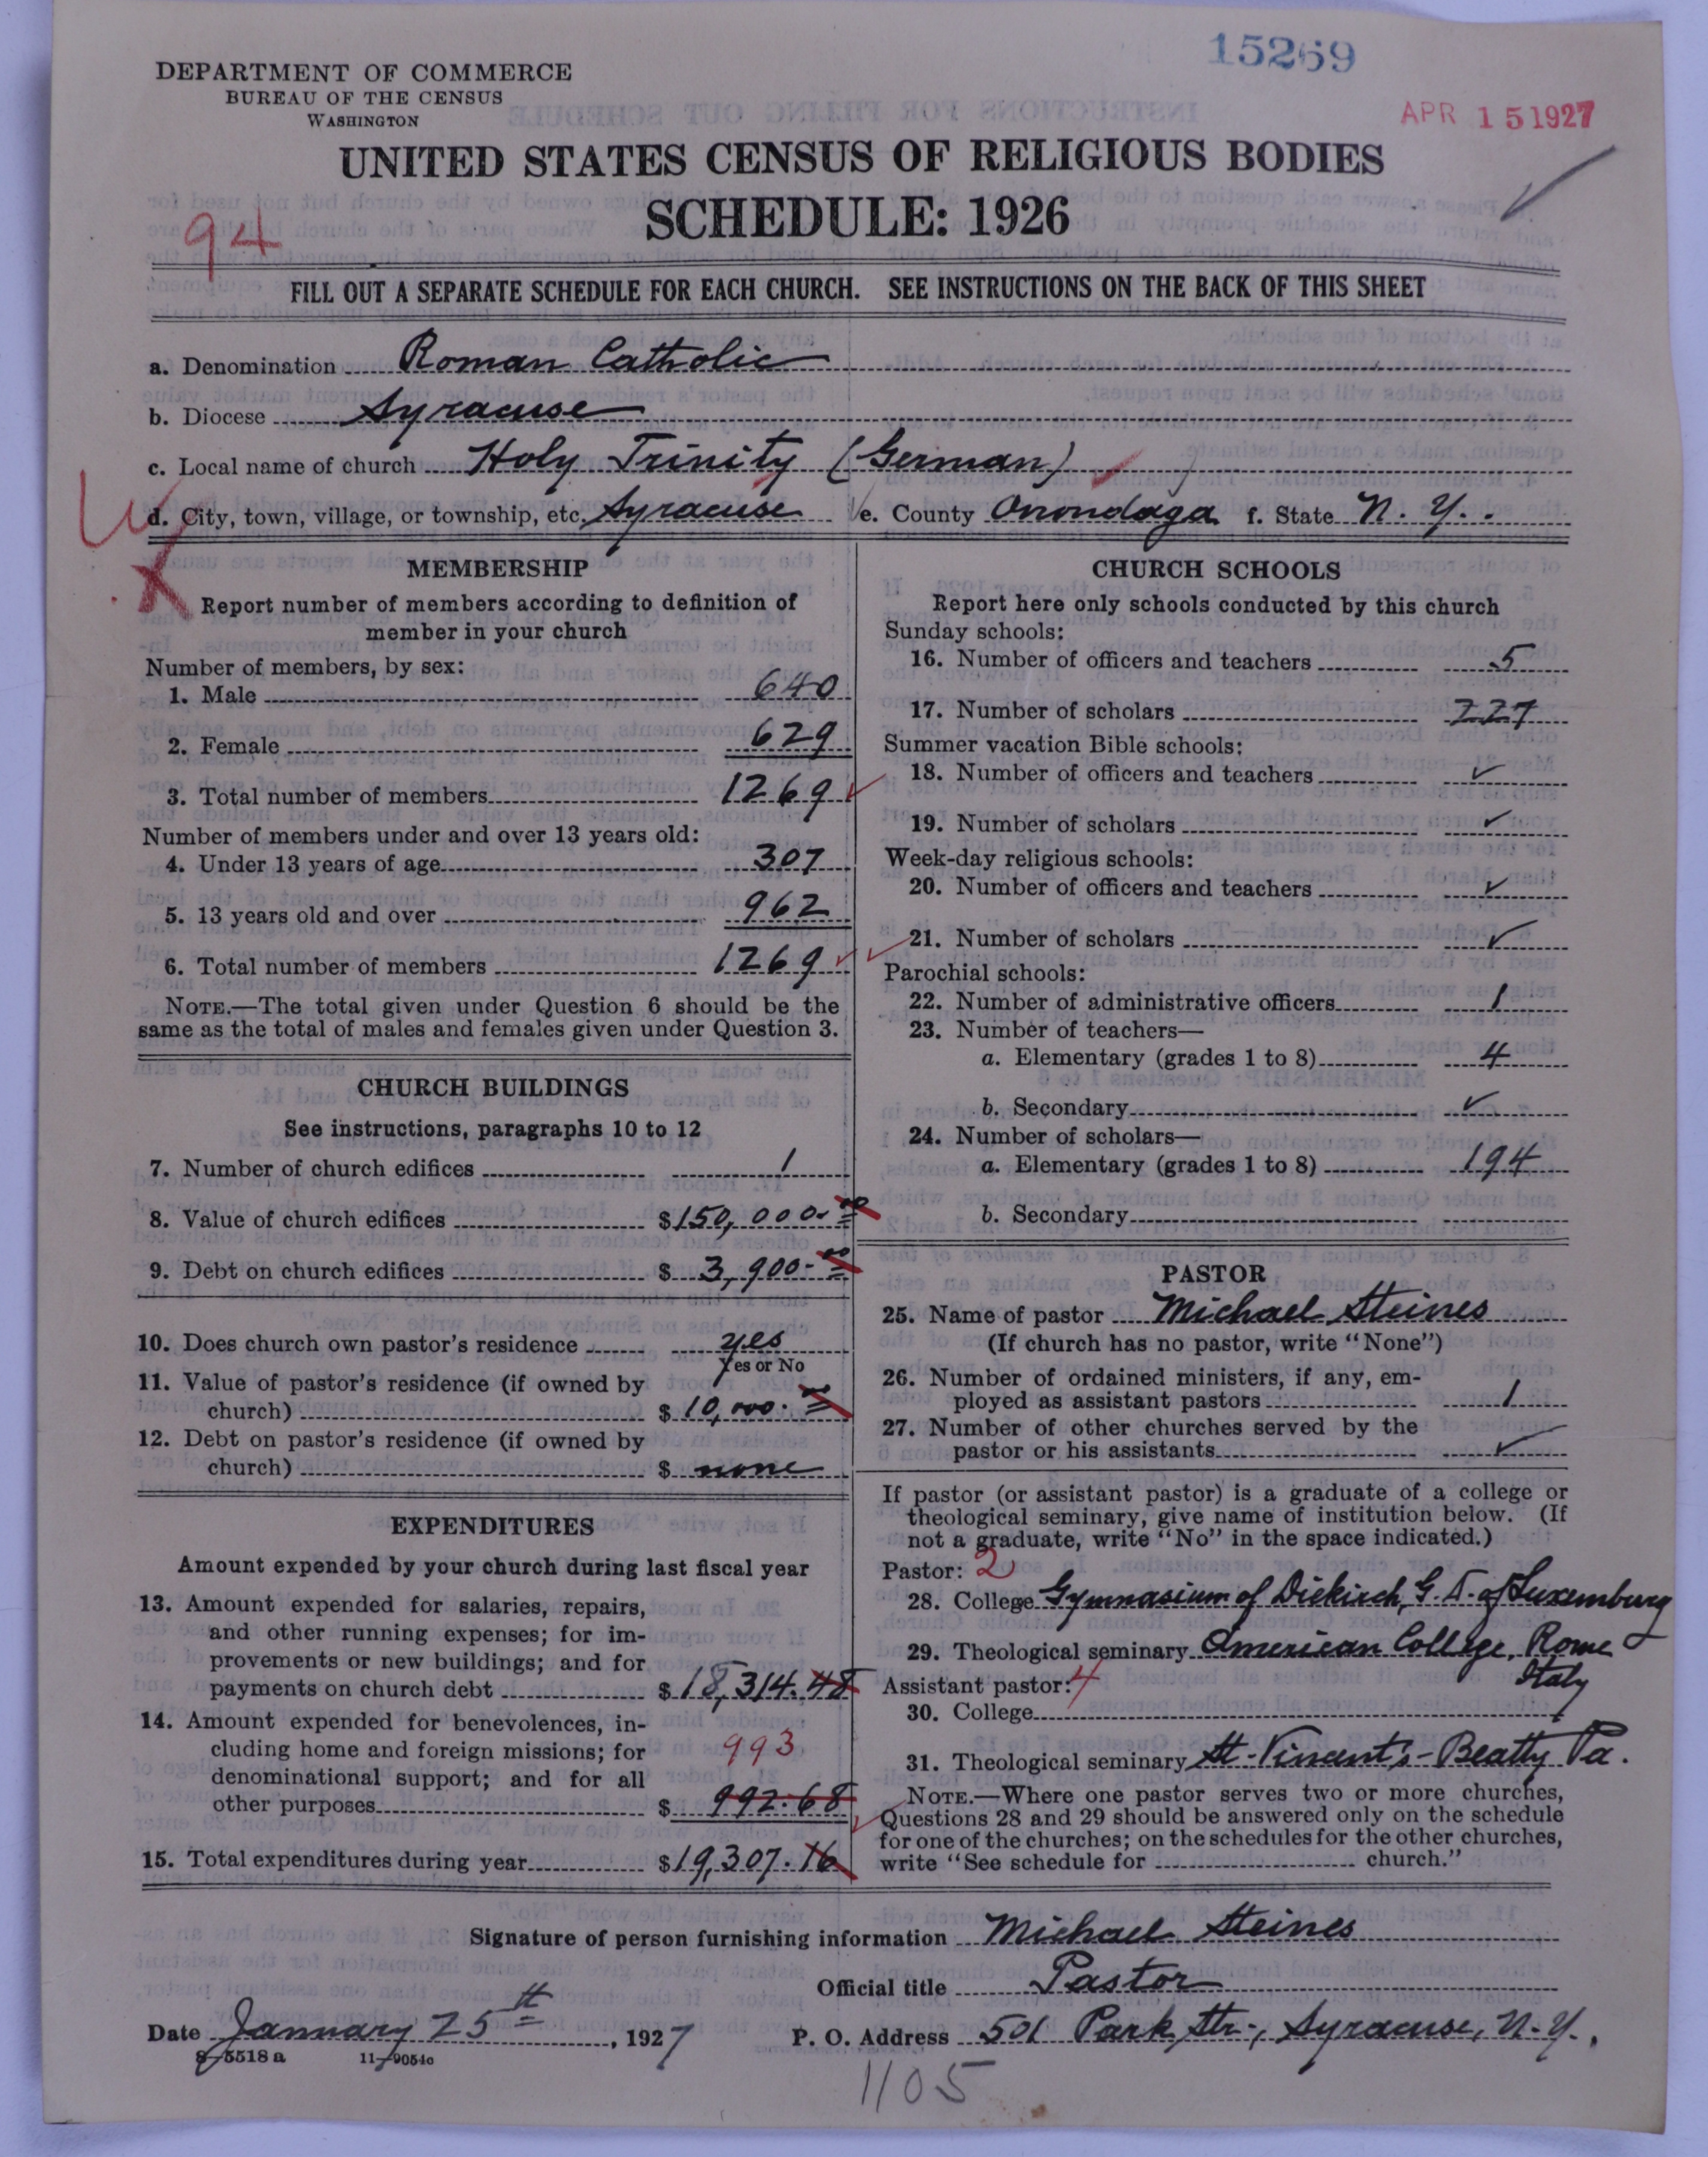 15269
DEPARTMENT OF COMMERCE
BUREAU OF THE CENSUS
WASHINGTON
APR 15 1927
UNITED STATES CENSUS OF RELIGIOUS BODIES
SCHEDULE: 1926
94
FILL OUT A SEPARATE SCHEDULE FOR EACH CHURCH. SEE INSTRUCTIONS ON THE BACK OF THIS SHEET
a. Denomination Roman Catholic
b. Diocese Syracuse
c. Local name of church Holy Trinity (German)
d. City, town, village, or township, etc. Syracuse e. County Onondaga f. State N. Y.
MEMBERSHIP
Report number of members according to definition of
member in your church
Number of members, by sex:
1. Male 640
2. Female 629
3. Total number of members 1269
Number of members under and over 13 years old:
4. Under 13 years of age 307
5. 13 years old and over 962
6. Total number of members 1269
NOTE.—The total given under Question 6 should be the
same as the total of males and females given under Question 3.
CHURCH BUILDINGS
See instructions, paragraphs 10 to 12
7. Number of church edifices 1
8. Value of church edifices $150,000.00
9. Debt on church edifices $3,900.00
10. Does church own pastor's residence yes
Yes or No
11. Value of pastor's residence (if owned by
church) $10,000.00
12. Debt on pastor's residence (if owned by
church) $ none
EXPENDITURES
Amount expended by your church during last fiscal year
13. Amount expended for salaries, repairs,
and other running expenses; for im-
provements or new buildings; and for
payments on church debt $18,314.48
14. Amount expended for benevolences, in-
cluding home and foreign missions; for 993
denominational support; and for all
other purposes $992.68
15. Total expenditures during year $19,307.16
CHURCH SCHOOLS
Report here only schools conducted by this church
Sunday schools:
16. Number of officers and teachers 5
17. Number of scholars 227
Summer vacation Bible schools:
18. Number of officers and teachers ✓
19. Number of scholars ✓
Week-day religious schools:
20. Number of officers and teachers ✓
21. Number of scholars ✓
Parochial schools:
22. Number of administrative officers 1
23. Number of teachers—
a. Elementary (grades 1 to 8) 4
b. Secondary ✓
24. Number of scholars—
a. Elementary (grades 1 to 8) 194
b. Secondary
PASTOR
25. Name of pastor Michael Steines
(If church has no pastor, write "None")
26. Number of ordained ministers, if any, em-
ployed as assistant pastors 1
27. Number of other churches served by the
pastor or his assistants ✓
If pastor (or assistant pastor) is a graduate of a college or
theological seminary, give name of institution below. (If
not a graduate, write "No" in the space indicated.)
Pastor: 2
28. College Gymnasium of Diekirch, G. D. of Luxemburg
29. Theological seminary American College, Rome
Italy
Assistant pastor: 4
30. College
31. Theological seminary St. Vincent's - Beatty Pa.
NOTE.—Where one pastor serves two or more churches,
Questions 28 and 29 should be answered only on the schedule
for one of the churches; on the schedules for the other churches,
write "See schedule for church."
Signature of person furnishing information Michael Steines
Official title Pastor
Date January 25th, 1927 P. O. Address 501 Park Str., Syracuse, N. Y.
8-5518 a 11-9054c
1105